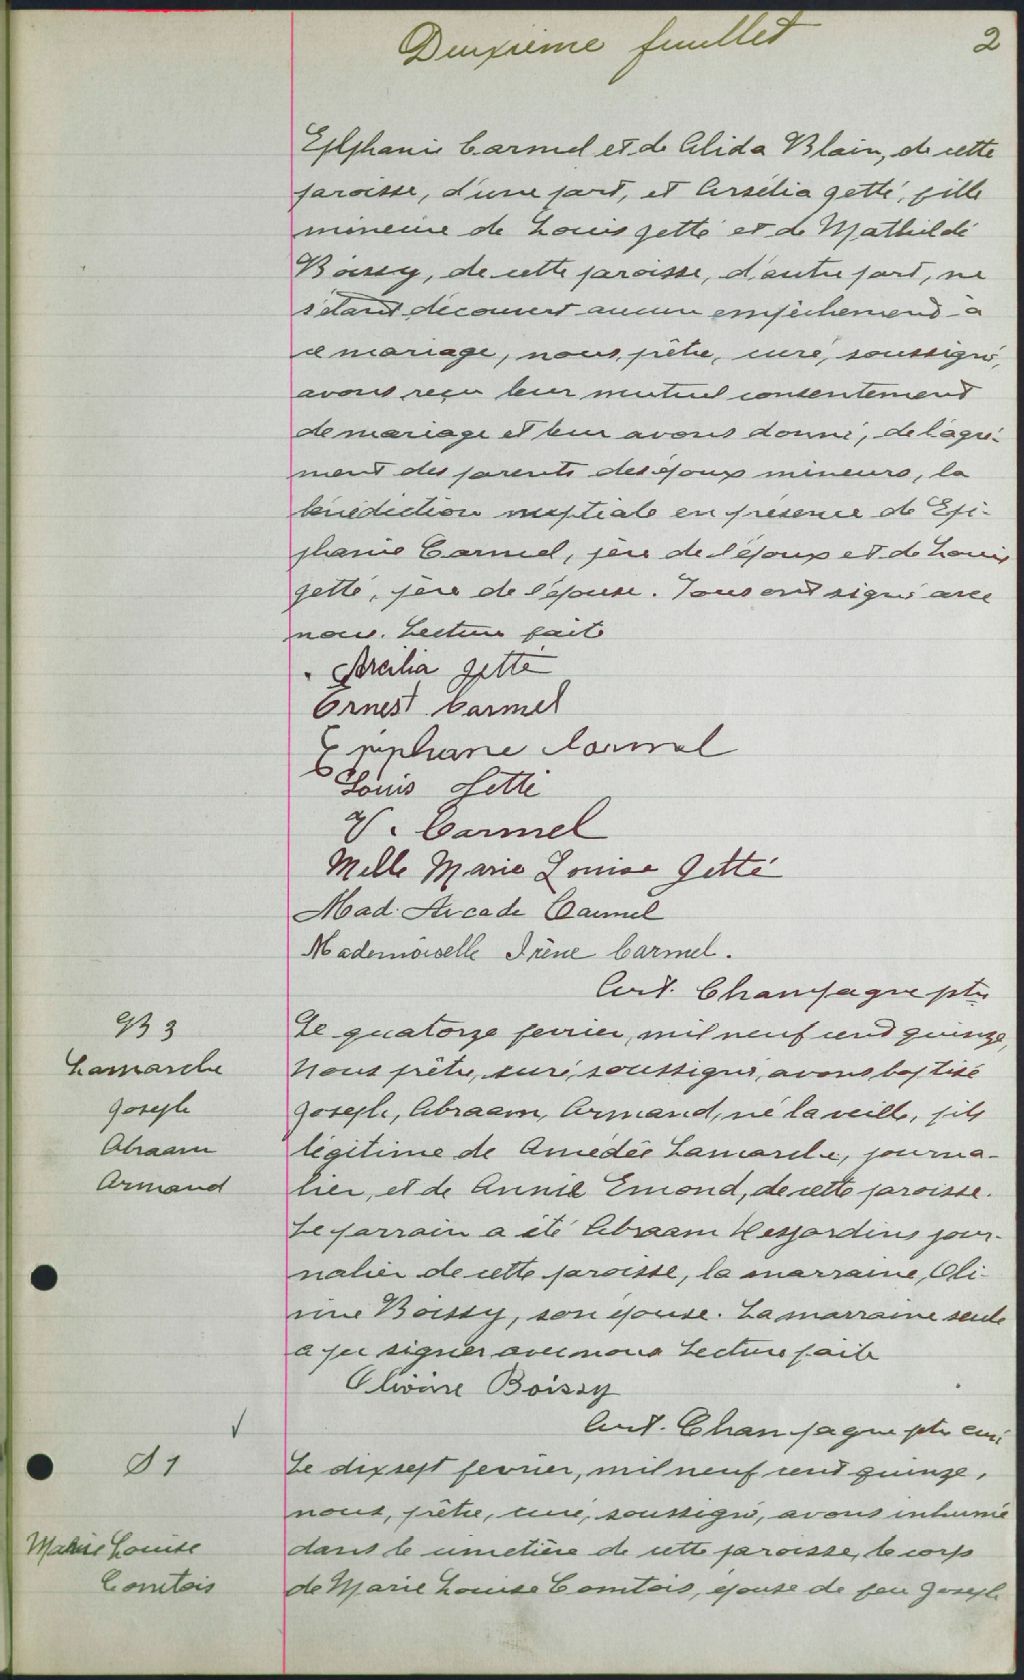 Deuxième feuillet
2
Epiphanie Carmel et de Alida Blain, de cette
paroisse, d'une part, et Arsélia Jetté, fille
mineure de Louis Jetté et de Mathilde
Boissy, de cette paroisse, d'autre part, ne
s'étant découvert aucun empêchement à
ce mariage, nous, prêtre, curé, soussigné,
avons reçu leur mutuel consentement
de mariage et leur avons donné, de l'agré-
ment des parents des époux mineurs, la
bénédiction nuptiale en présence de Epi-
phanie Carmel, père de l'époux et de Louis
Jetté, père de l'épouse. Tous ont signé avec
nous. Lecture faite
Arcilia Jetté
Ernest Carmel
Epiphane Carmel
Louis Jetté
V. Carmel
Melle Marie Louise Jetté
Mad. Arcade Carmel
Mademoiselle Irène Carmel.
Art. Champagne ptre
B 3
Lamarche
Joseph
Abraam
Armand
Le quatorze fevrier, mil neuf cent quinze,
Nous prêtre, curé, soussigné, avons baptisé
Joseph, Abraam, Armand, né la veille, fils
légitime de Amédée Lamarche, journa-
lier, et de Annie Emond, de cette paroisse.
Le parrain a été Abraam Desjardins jour-
nalier de cette paroisse, la marraine, Oli-
vine Boissy, son épouse. La marraine seule
a pu signer avec nous Lecture faite
Olivine Boissy
Art. Champagne ptre curé
S 1
Marie Louise
Comtois
Le dix sept fevrier, mil neuf cent quinze,
nous, prêtre, curé, soussigné, avons inhumé
dans le cimetière de cette paroisse, le corps
de Marie Louise Comtois, épouse de feu Joseph